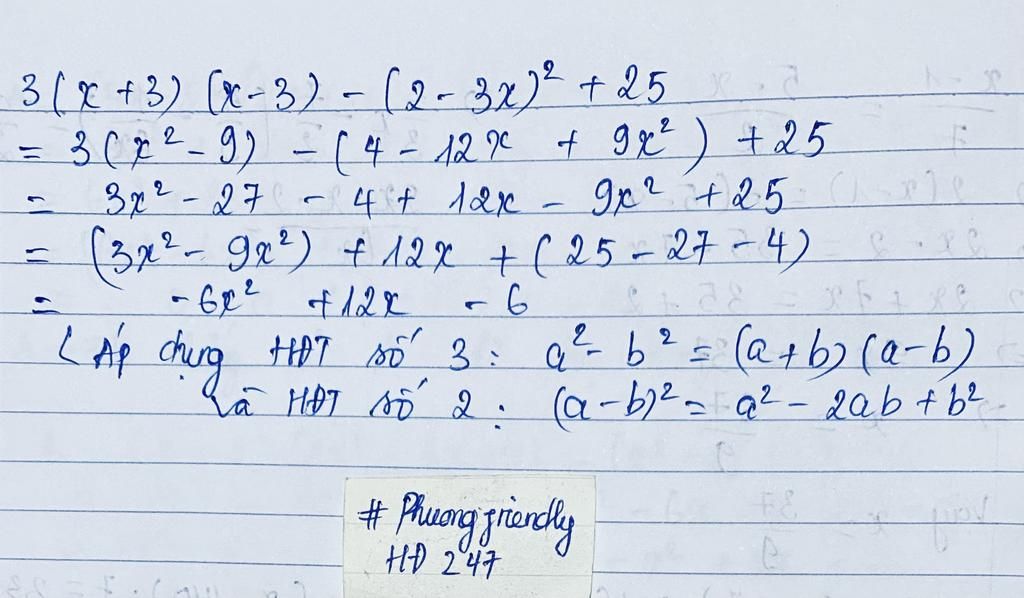 3(x+3)(x-3) - (2-3x)² + 25
= 3(x² - 9) - (4 - 12x + 9x²) + 25
= 3x² - 27 - 4 + 12x - 9x² + 25
= (3x² - 9x²) + 12x + (25 - 27 - 4)
= -6x² + 12x - 6
( Áp dụng HĐT số 3 : a² - b² = (a+b)(a-b)
và HĐT số 2 : (a-b)² = a² - 2ab + b²
# Phuongfriendly
HĐ 247